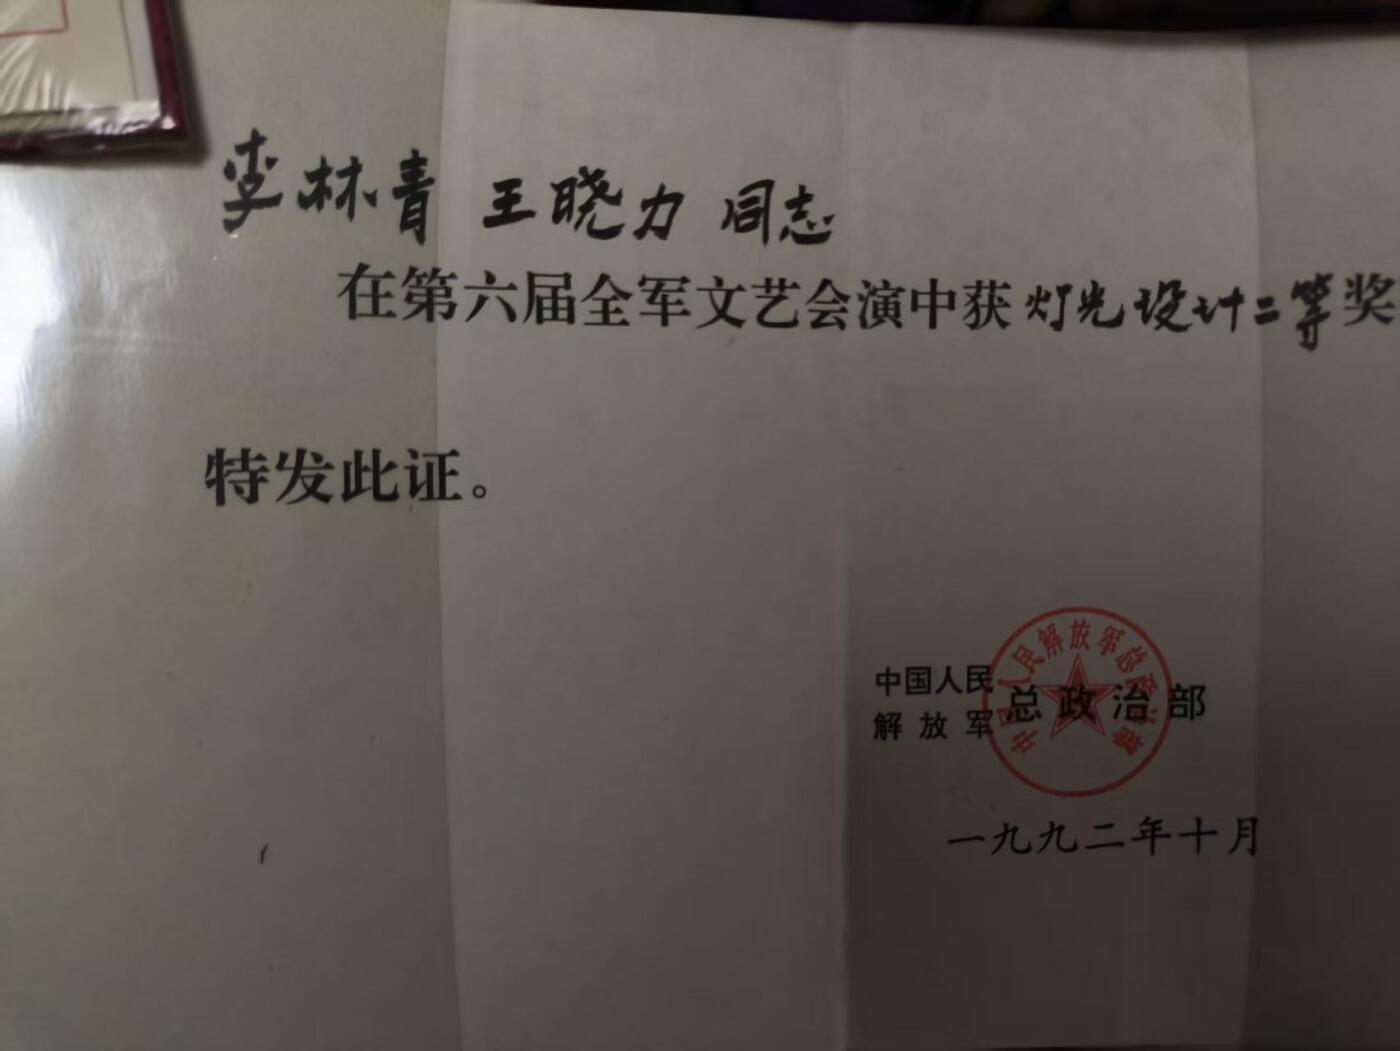 李林青 王晓力 同志
在第六届全军文艺会演中获灯光设计二等奖
特发此证。
中国人民
解放军 总政治部
中国人民解放军总政治部
一九九二年十月